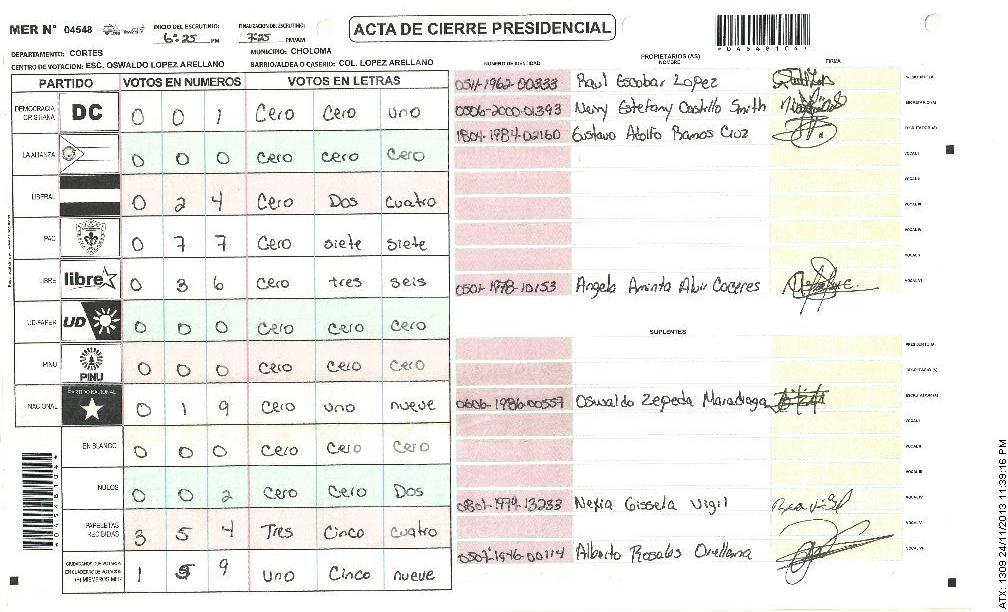 MER N° 04548
INICIO DEL ESCRUTINIO: 6:25 PM
FINALIZACION DEL ESCRUTINIO: 7:25 PM/AM
ACTA DE CIERRE PRESIDENCIAL
DEPARTAMENTO: CORTES
MUNICIPIO: CHOLOMA
CENTRO DE VOTACION: ESC. OSWALDO LOPEZ ARELLANO
BARRIO/ALDEA O CASERIO: COL. LOPEZ ARELLANO
PARTIDO VOTOS EN NUMEROS VOTOS EN LETRAS
DEMOCRACIA CRISTIANA DC 0 0 1 Cero Cero uno
LA ALIANZA 0 0 0 Cero cero cero
LIBERAL 0 2 4 Cero Dos cuatro
PAC 0 7 7 Cero siete siete
LIBRE libre 0 3 6 Cero tres seis
UD-FAPER UD 0 0 0 Cero Cero Cero
PINU PINU 0 0 0 Cero Cero Cero
NACIONAL PARTIDO NACIONAL 0 1 9 Cero uno nueve
EN BLANCO 0 0 0 Cero Cero Cero
NULOS 0 0 2 Cero Cero Dos
PAPELETAS RECIBIDAS 3 5 4 Tres Cinco cuatro
CIUDADANOS QUE VOTARON EN CUADERNO DE VOTACION (+) MIEMBROS MER 1 5 9 uno Cinco nueve
NUMERO DE IDENTIDAD
PROPIETARIOS (AS)
NOMBRE
FIRMA
0511-1962-00333 Raul Escobar Lopez PRESIDENTE (A)
0506-2000-01393 Neiry Estefany Castillo Smith SECRETARIO (A)
1804-1984-02160 Gustavo Adolfo Ramos Cruz ESCRUTADOR (A)
VOCAL I
VOCAL II
VOCAL III
VOCAL IV
VOCAL V
0501-1978-10153 Angela Aminta Alvir Caceres VOCAL VI
SUPLENTES
PRESIDENTE (A)
SECRETARIO (A)
0606-1986-00557 Oswaldo Zepeda Maradiaga ESCRUTADOR (A)
VOCAL I
VOCAL II
VOCAL III
0801-1979-13233 Nexia Gissela Vigil VOCAL IV
VOCAL V
0502-1946-00114 Alberto Rosales Orellana VOCAL VI
ATX: 1309 24/11/2013 11:39:16 PM